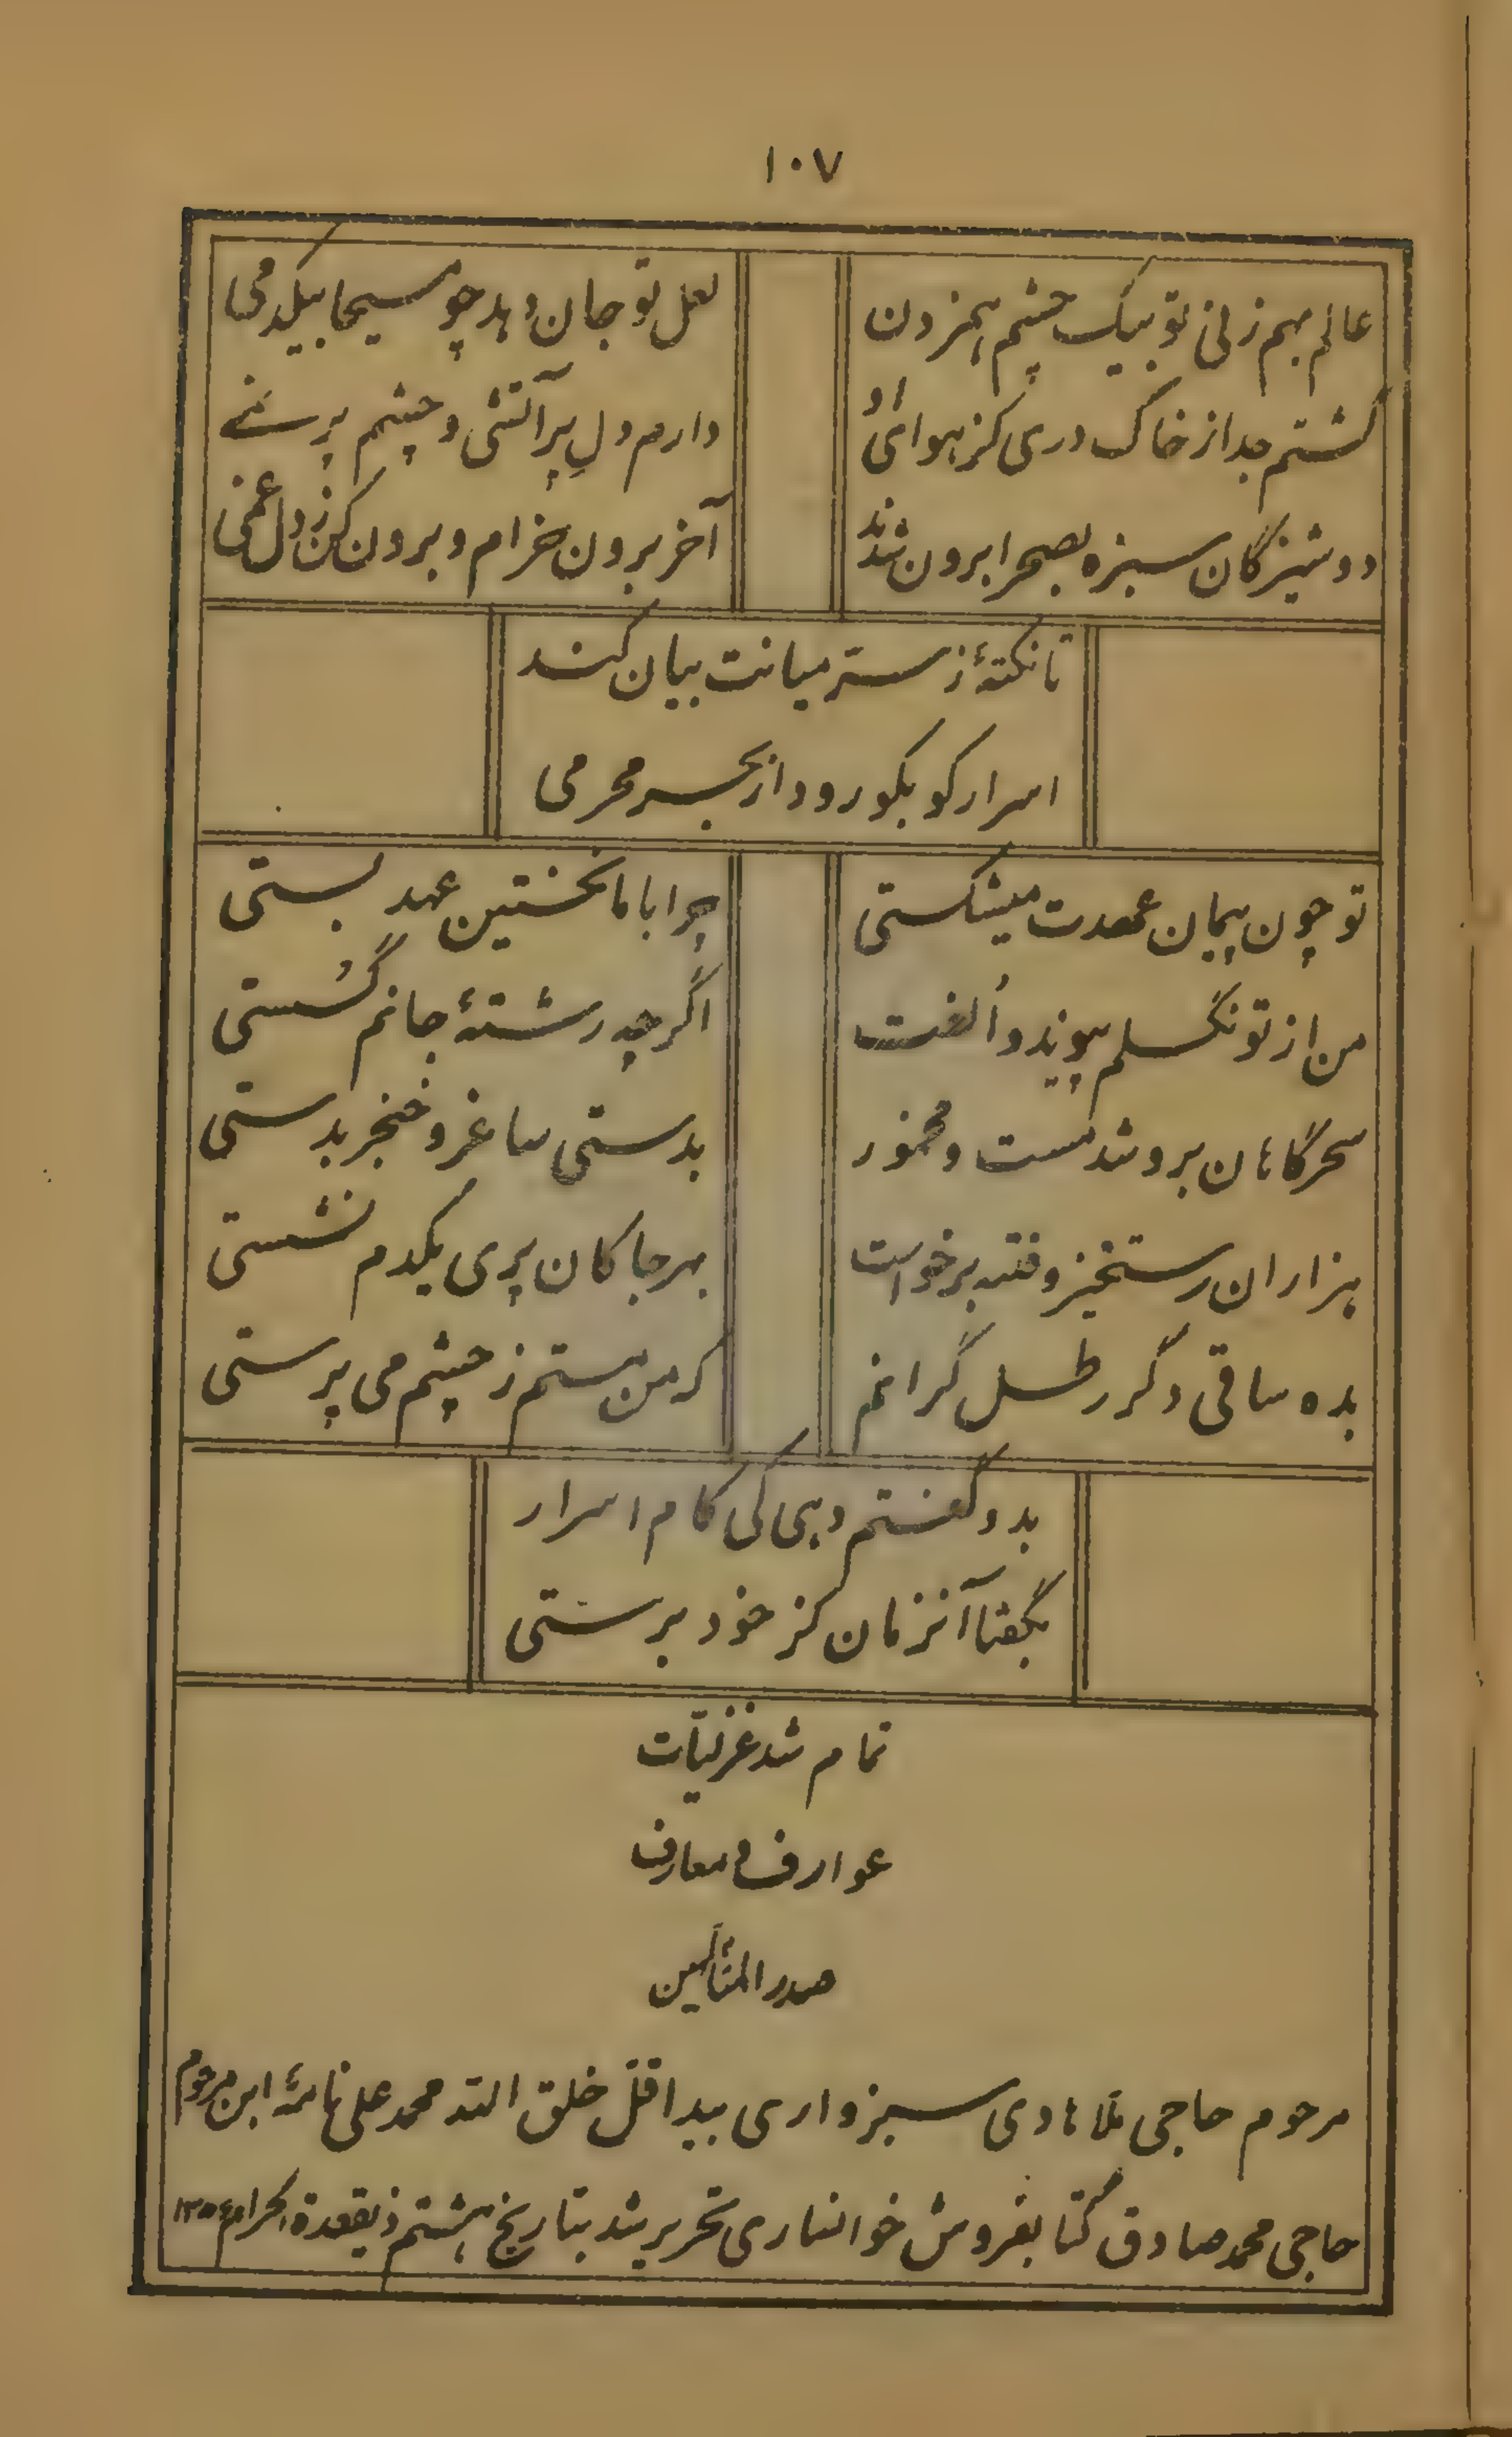 ۱۰۷
عالم بهم زنی تو بیک چشم بهمزدن
لعل تو جان دهد چو مسیحا بیکدمی
گشتم جدا ز خاک دری کز هوای او
دارم دل پر آتشی و چشم پر نمی
دوشیزگان سبزه بصحرا برون شدند
آخر برون خرام و برون کن ز دل غمی
تا نکتهٔ ز سرّ میانت بیان کند
اسرار کو بکو رود از بهر محرمی
تو چون پیمان عهدت میشکستی
چرا با ما نخستین عهد بستی
من از تو نگسلم پیوند و اُلفت
اگر چه رشتهٔ جانم گُسستی
سحرگاهان برو شد مست و مخمور
بدستی ساغر و خنجر بدستی
هزاران رستخیز و فتنه برخواست
بهرجا کان پری یکدم نشستی
بده ساقی دگر رطل گرانم
که من هستم ز چشم می پرستی
بدو گفتم دهی کی کام اسرار
بگفتا آنزمان کز خود برستی
تمام شد غزلیّات
عوارف و معارف
صدر المتألّهین
مرحوم حاجی ملا هادی سبزواری بید اقلّ خلق الله محمد علی ابن مرحوم
حاجی محمد صادق کتابفروش خوانساری تحریر شد بتاریخ هشتم ذیقعدة الحرام